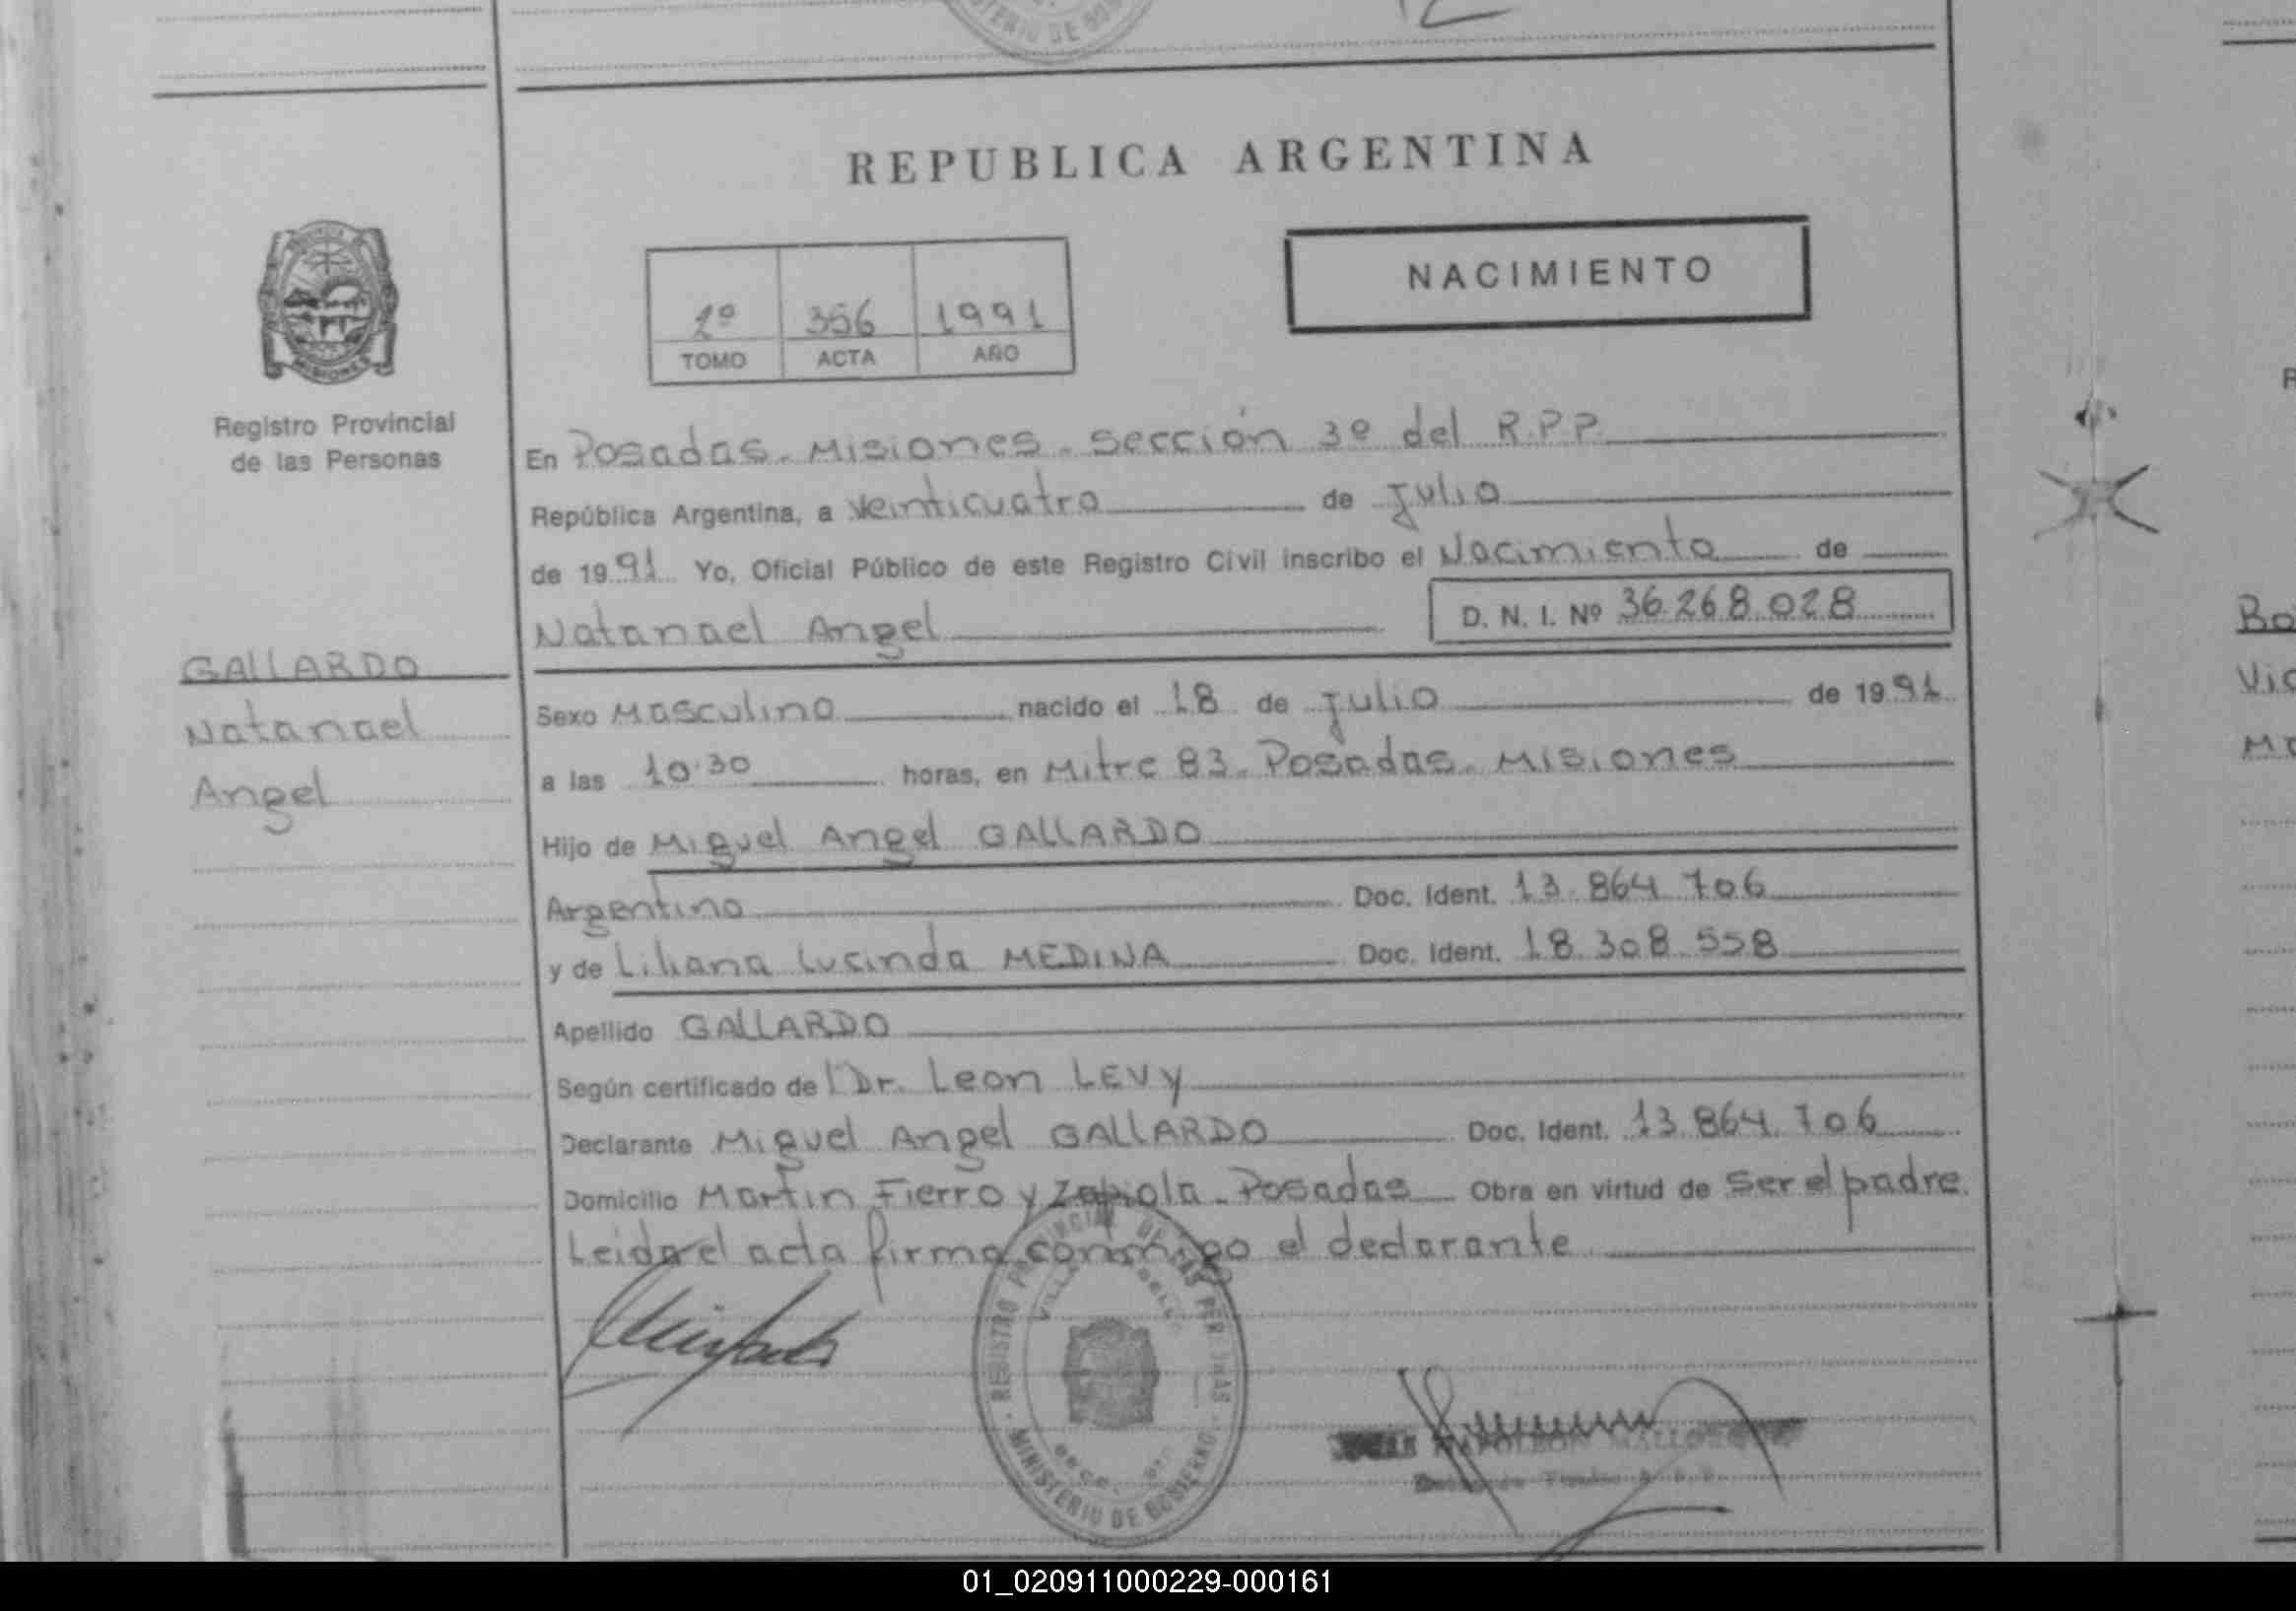 MINISTERIO DE GOB
REPUBLICA ARGENTINA
NACIMIENTO
2º 356 1991
TOMO ACTA AÑO
MISIONES
Registro Provincial
de las Personas
En Posadas. Misiones. Sección 3º del R.P.P.
República Argentina, a veinticuatro de Julio
de 1991 Yo, Oficial Público de este Registro Civil inscribo el Nacimiento de
Natanael Angel D. N. I. Nº 36.268.028
GALLARDO
Natanael
Angel
Sexo Masculino nacido el 18 de Julio de 1991
a las 10.30 horas, en Mitre 83. Posadas. Misiones
Hijo de Miguel Angel GALLARDO
Argentino Doc. Ident. 13.864.706
y de Liliana Lucinda MEDINA Doc. Ident. 18.308.558
Apellido GALLARDO
Según certificado de l Dr. Leon LEVY
Declarante Miguel Angel GALLARDO Doc. Ident. 13.864.706
Domicilio Martin Fierro y Zapiola. Posadas Obra en virtud de ser el padre.
Leida el acta firma conmigo el declarante
REGISTRO PROVINCIAL DE LAS PERSONAS
MINISTERIO DE GOBIERNO
NAPOLEON
01_020911000229-000161